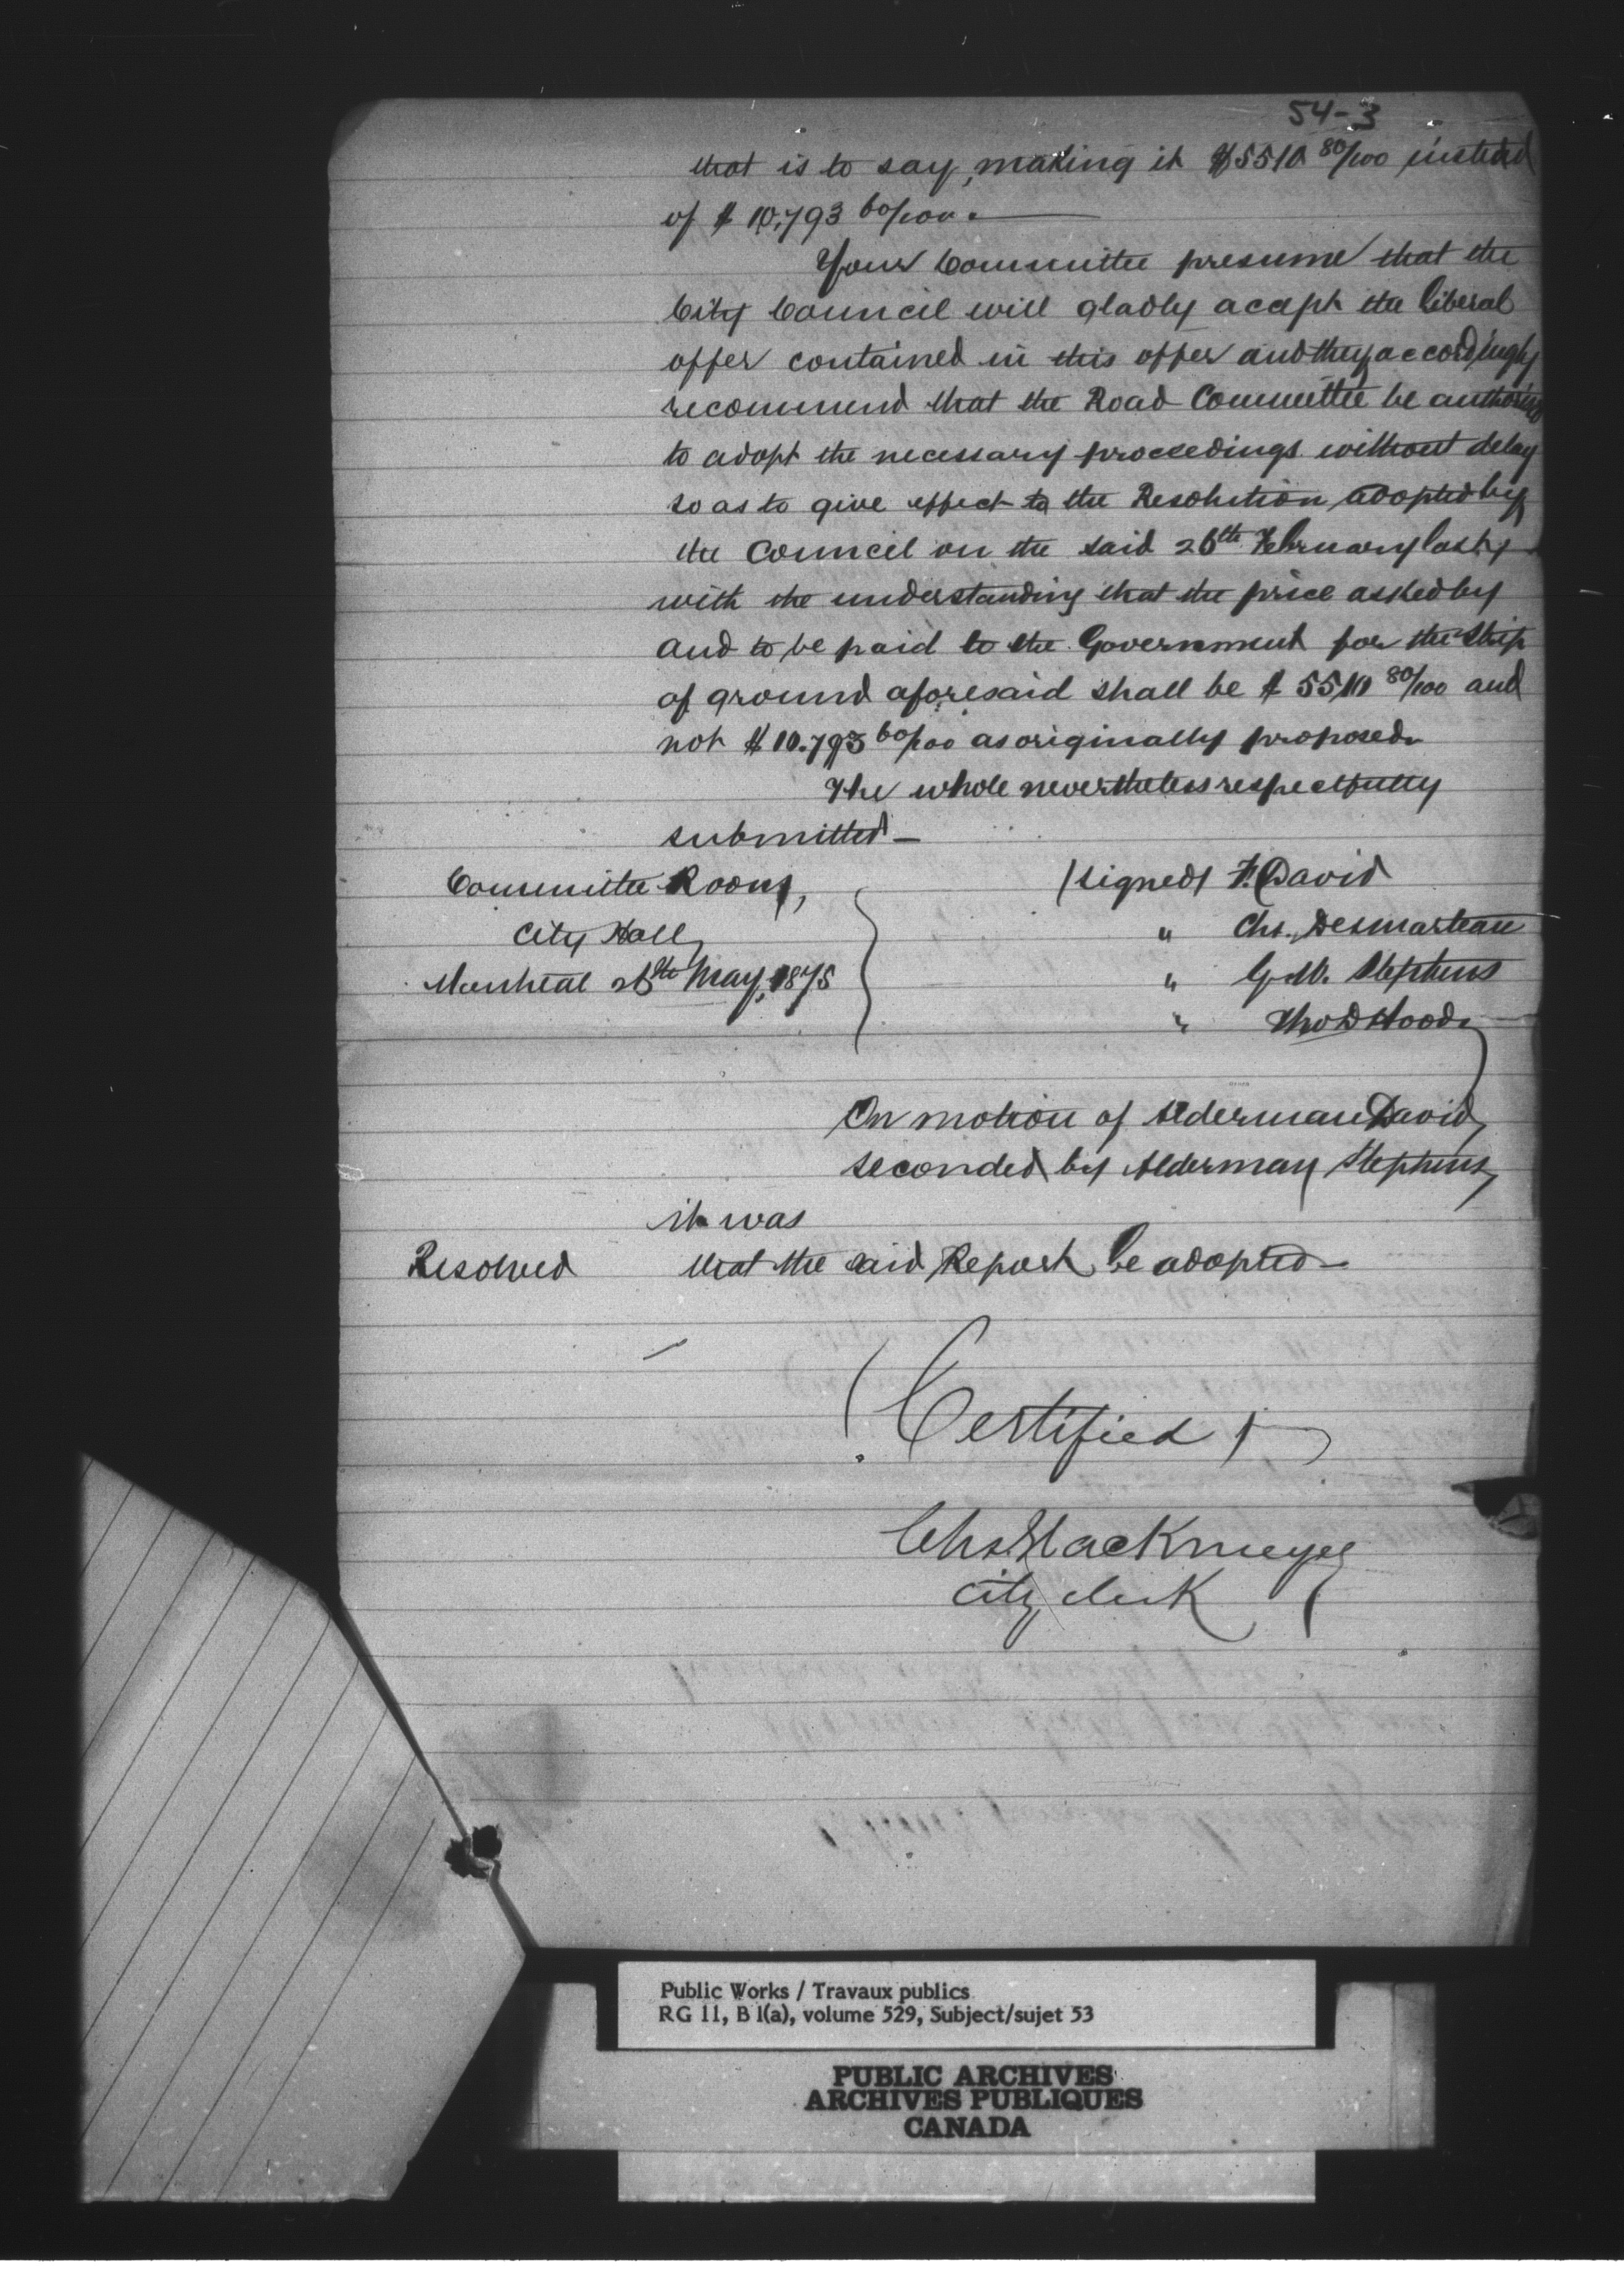 54-3
that is to say, making it $5510 80/100 instead
of $ 10,793 60/100.
Your Committee presume that the
City Council will gladly accept the liberal
offer contained in this offer and they accordingly
recommend that the Road Committee be authorized
to adopt the necessary proceedings without delay
so as to give effect to the Resolution adopted by
the Council on the said 26th February last,
with the understanding that the price asked by
and to be paid to the Government for the strip
of ground aforesaid shall be $ 5510 80/100 and
not $ 10.793 60/100 as originally proposed
The whole nevertheless respectfully
submitted —
Committee Room, (signed) F. David
City Hall, " Chs. Desmarteau
Montreal May, 1875 " G.W. Stephens
" Thos D Hood
On motion of Alderman David,
seconded by Alderman Stephens,
it was
Resolved that the said Report be adopted —
(Certified)
Chs. Glackmeyer
City Clerk
Public Works / Travaux publics
RG 11, B 1(a), volume 529, Subject/sujet 53
PUBLIC ARCHIVES
ARCHIVES PUBLIQUES
CANADA